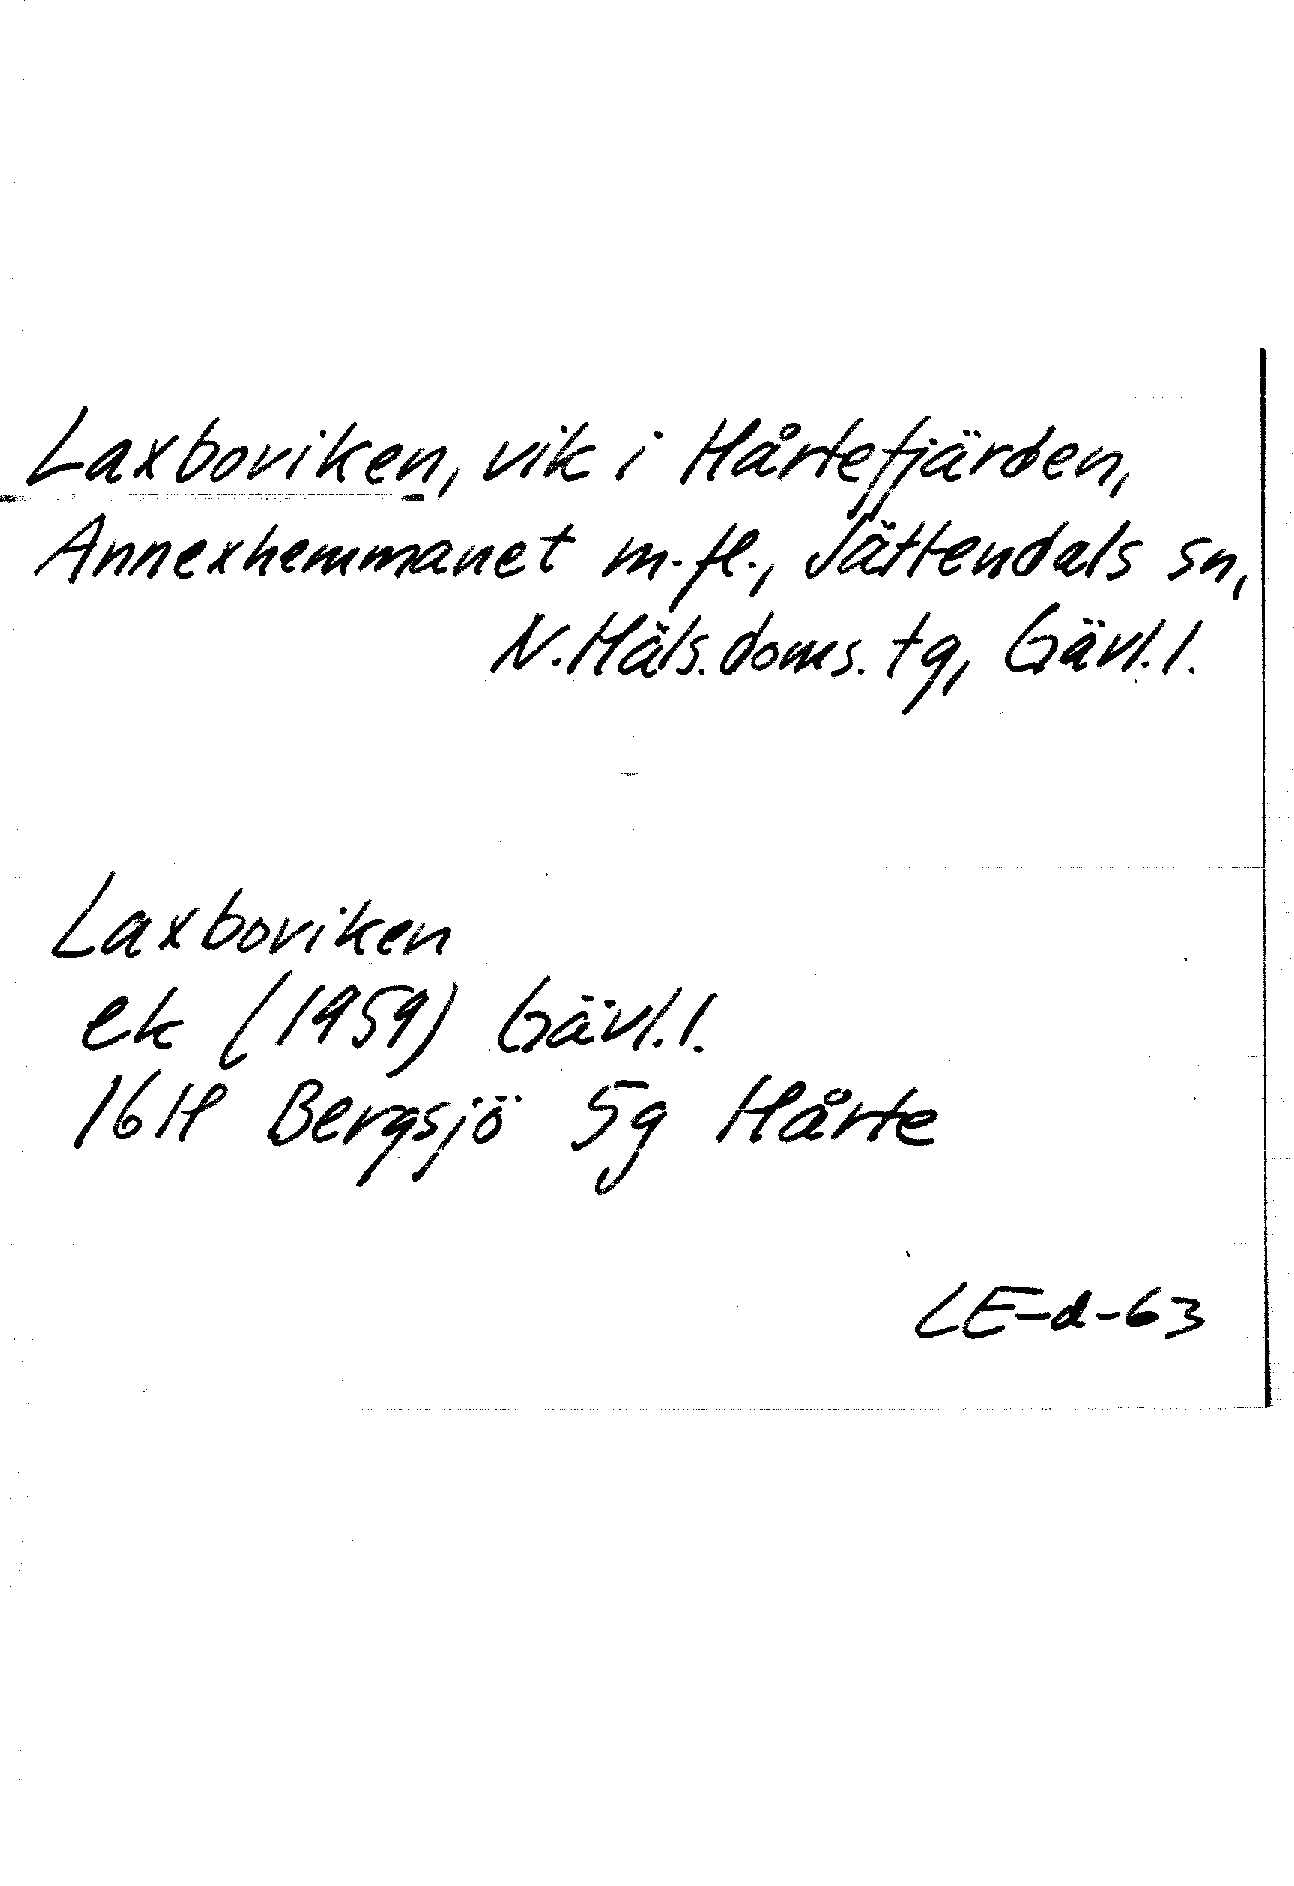 Laxboviken, vik i Hårtefjärden,
Annexhemmanet m.fl., Jättendals sn,
N. Häls. doms. tg, Gävl. l.
Laxboviken
ek (1959) Gävl. l.
16H Bergsjö 5g Hårte
LE-d-63